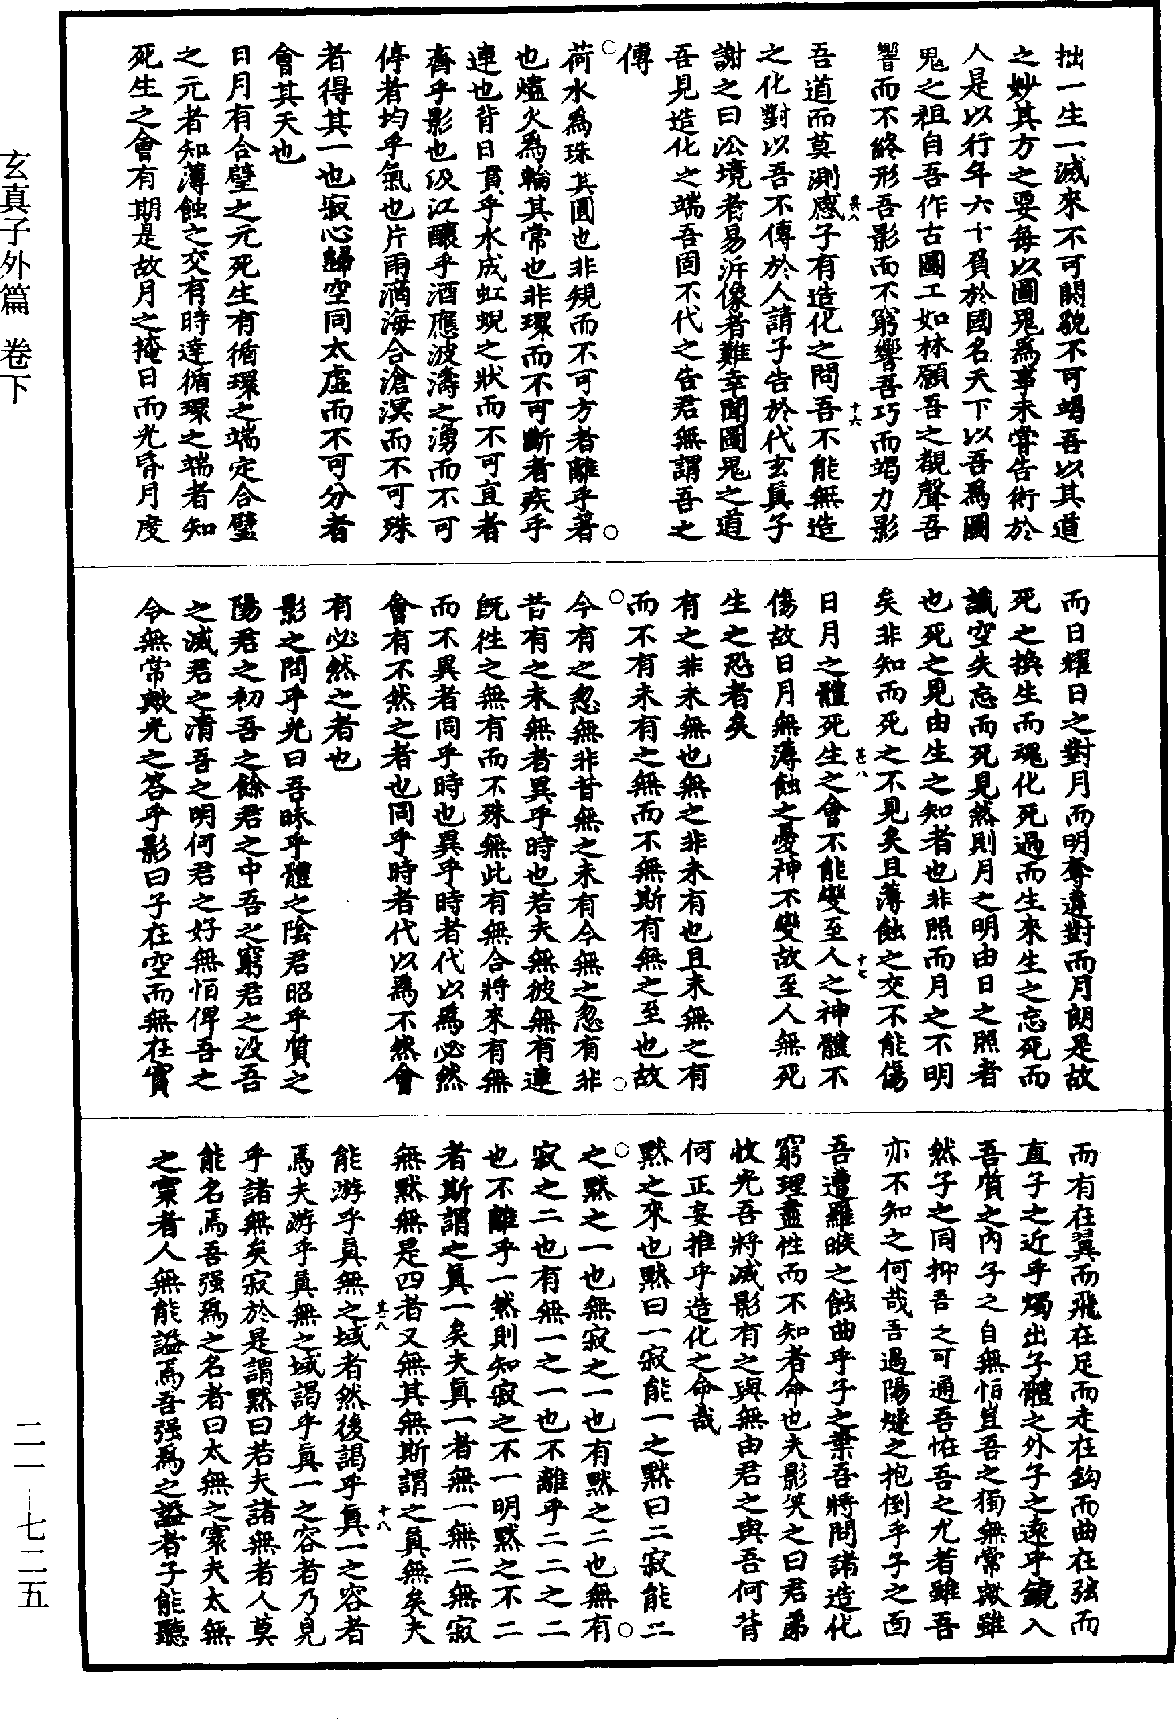 拙一生一滅來不可閼貌不可竭吾以其道
之妙其方之要每以圖鬼爲事未嘗告術於
人是以行年六十負於國名天下以吾爲圖
鬼之祖自吾作古圖工如林願吾之觀聲吾
響而不終形吾影而不窮響吾巧而竭力影
吾道而莫測感子有造化之問吾不能無造
之化對以吾不傳於人請子告於代玄眞子
謝之曰汾境者易泝像者難幸聞圖鬼之道
吾見造化之端吾固不代之告君無謂吾之
傳
荷水爲珠其圓也非規而不可方者離乎著
也燼火爲輪其常也非環而不可斷者疾乎
連也背日貫乎水成虹蜺之狀而不可直者
齊乎影也汲江釀乎酒應波濤之湧而不可
停者均乎氣也片雨滴海合滄溟而不可殊
者得其一也寂心歸空同太虛而不可分者
會其天也
日月有合璧之元死生有循環之端定合璧
之元者知薄蝕之交有時達循環之端者知
死生之會有期是故月之掩日而光昏月度
而日耀日之對月而明奪違對而月朗是故
死之換生而魂化死過而生來生之忘死而
識空失忘而死見然則月之明由日之照者
也死之見由生之知者也非照而月之不明
矣非知而死之不見矣且薄蝕之交不能傷
日月之體死生之會不能變至人之神體不
傷故日月無薄蝕之憂神不變故至人無死
生之恐者矣
有之非未無也無之非未有也且未無之有
而不有未有之無而不無斯有無之至也故
今有之忽無非昔無之未有今無之忽有非
昔有之未無者異乎時也若夫無彼無有連
旣往之無有而不殊無此有無合將來有無
而不異者同乎時也異乎時者代以爲必然
會有不然之者也同乎時者代以爲不然會
有必然之者也
影之問乎光曰吾昧乎體之陰君昭乎質之
陽君之初吾之餘君之中吾之窮君之沒吾
之滅君之清吾之明何君之好無怕俾吾之
今無常歟光之答乎影曰子在空而無在實
而有在翼而飛在足而走在鈎而曲在弦而
直子之近乎燭出子體之外子之遠乎鏡入
吾質之內子之自無怕豈吾之獨無常歟雖
然子之同抑吾之可通吾怪吾之尤者雖吾
亦不知之何哉吾過陽燧之抱倒乎子之面
吾遭羅睺之蝕曲乎子之葉吾將問諸造化
窮理盡性而不知者命也夫影笑之曰君弟
收光吾將滅影有之與無由君之與吾何背
何正妄推乎造化之命哉
默之來也默曰一寂能一之默曰二寂能二
之默之一也無寂之一也有默之二也無有
寂之二也有無一之一也不離乎二二之二
也不離乎一然則知寂之不一明默之不二
者斯謂之眞一矣夫眞一者無一無二無寂
無默無是四者又無其無斯謂之眞無矣夫
能游乎眞無之域者然後謁乎眞一之容者
焉夫游乎眞無之域謁乎眞一之容者乃見
乎諸無矣寂於是謂默曰若夫諸無者人莫
能名焉吾强爲之名者曰太無之寥夫太無
之寥者人無能謚焉吾强爲之謚者子能聽
其八
十六
其八
十七
其八
十八
玄真子外篇 卷下
二一—七二五